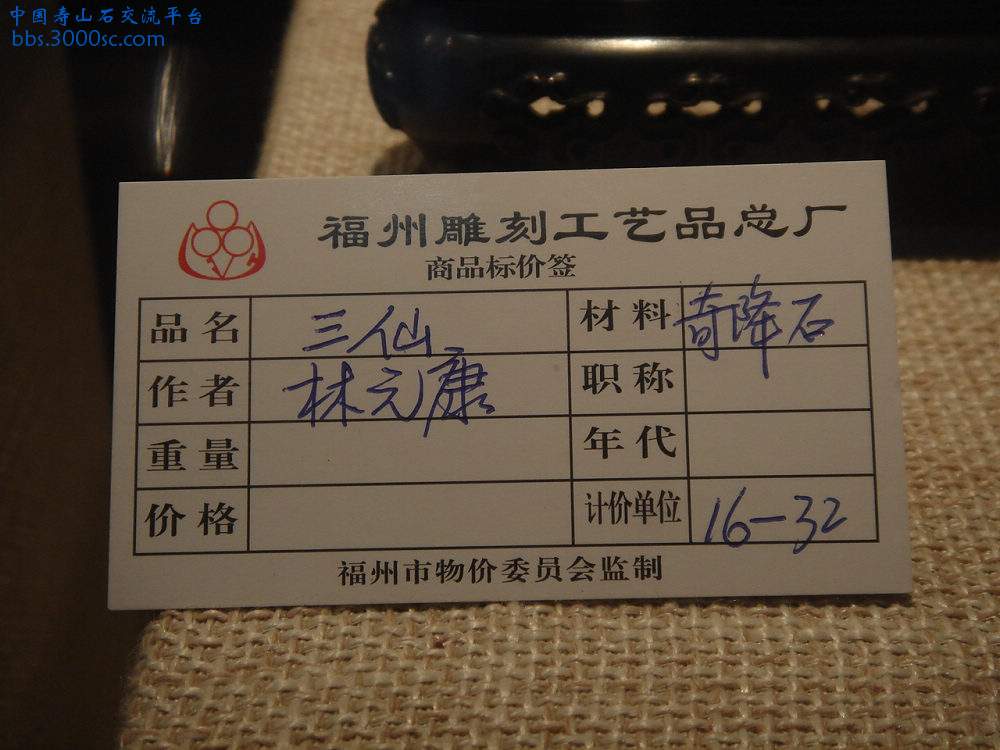 中国寿山石交流平台
bbs.3000sc.com
福州雕刻工艺品总厂
商品标价签
品名 三仙 材料 奇降石
作者 林元康 职称
重量 年代
价格 计价单位 16-32
福州市物价委员会监制